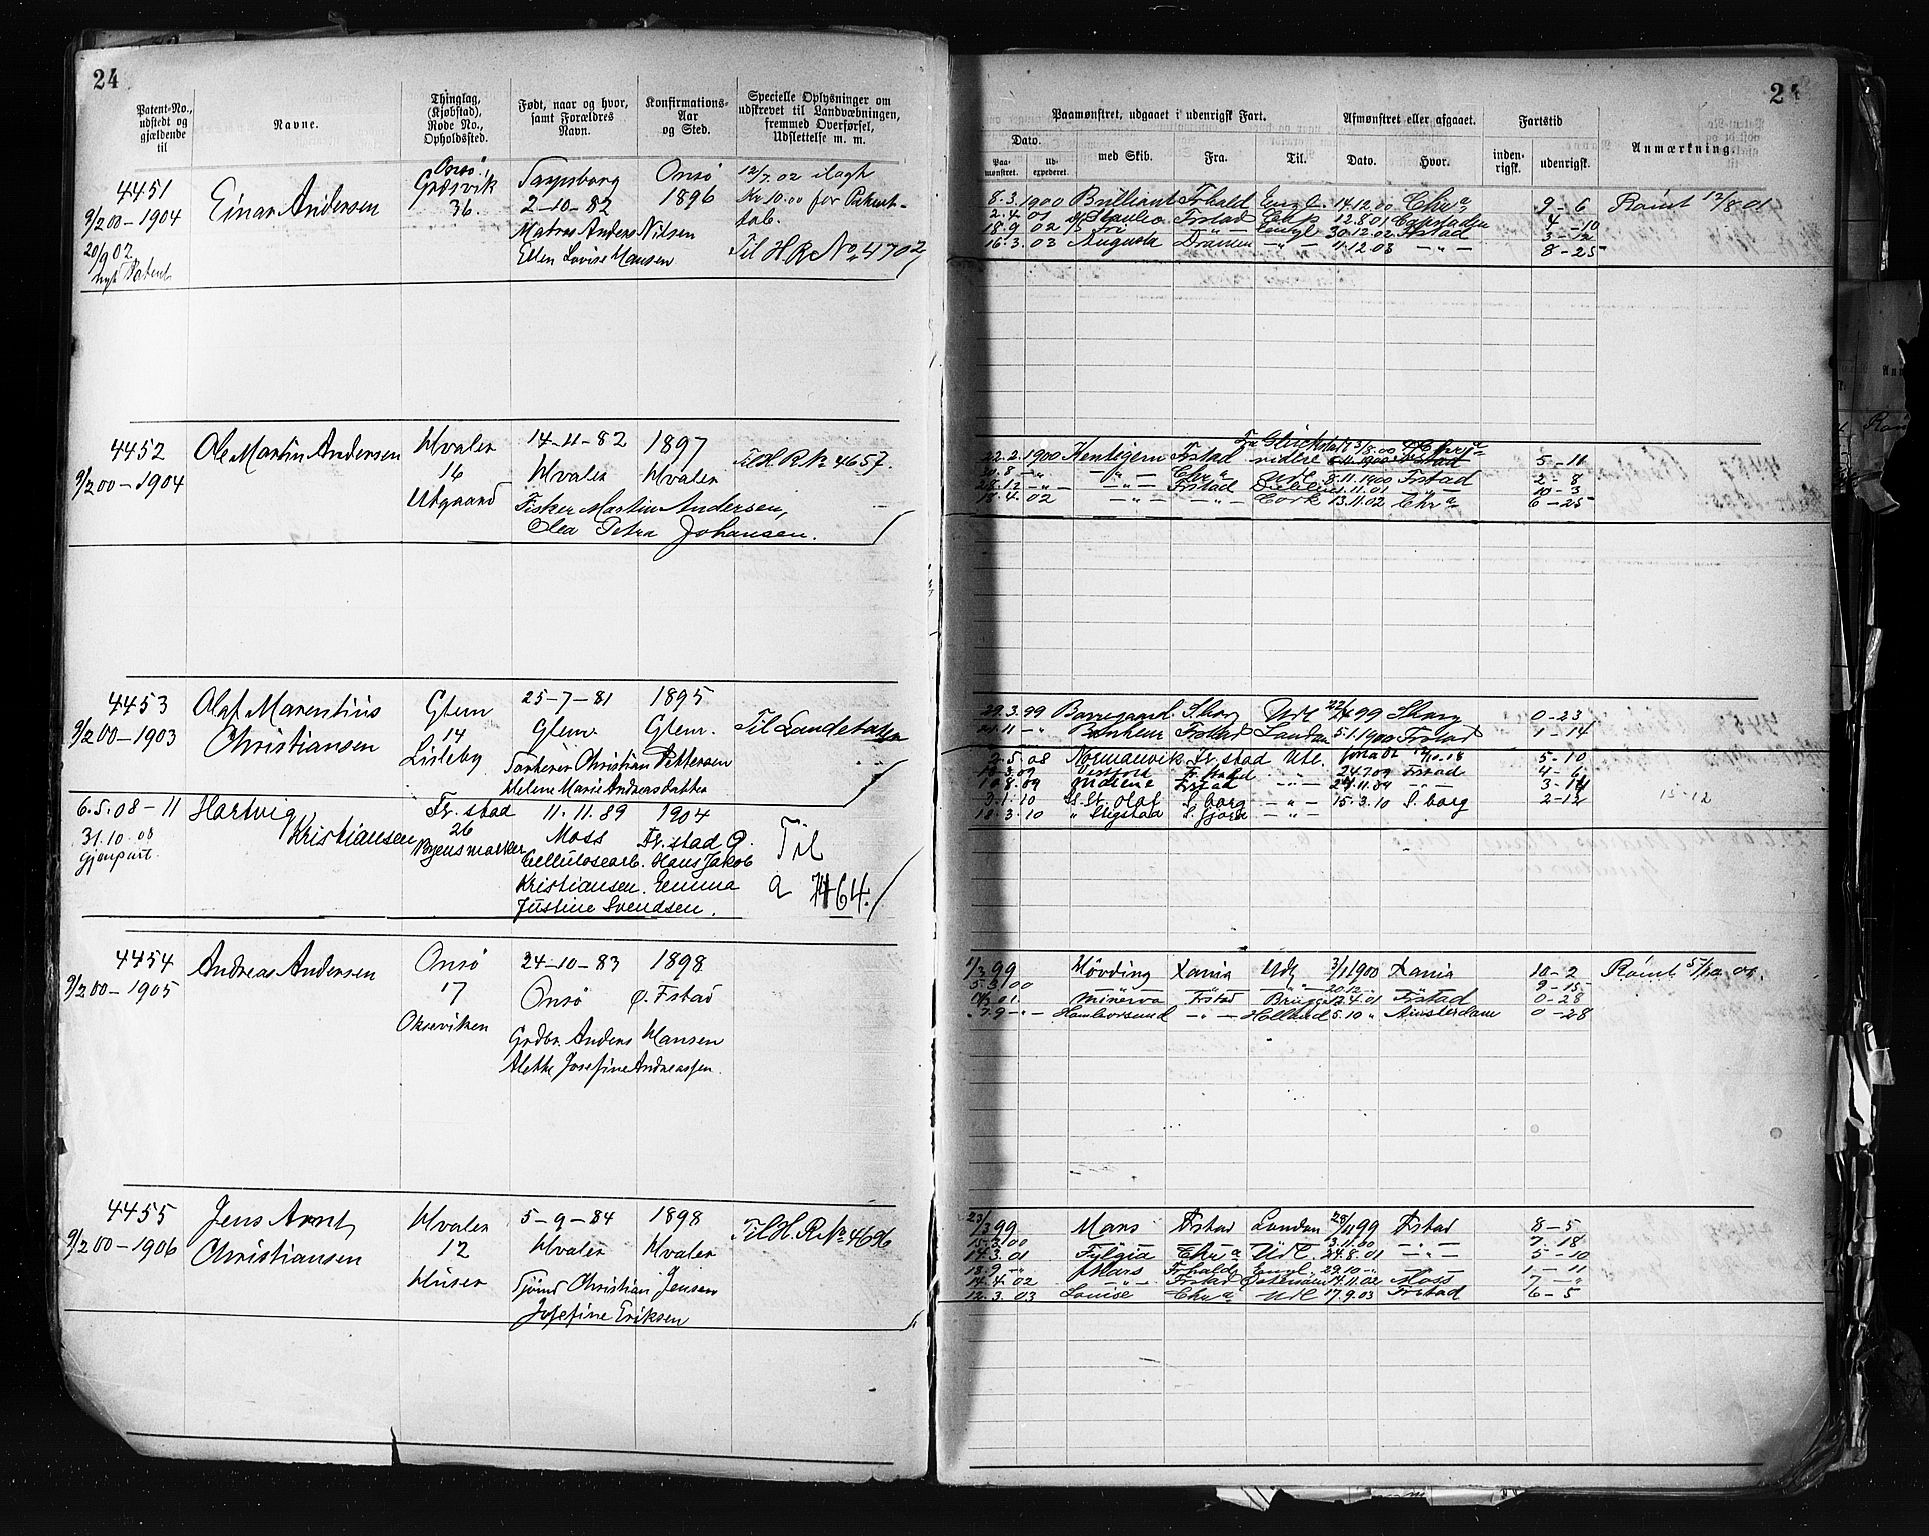 24
Patent-No., udstedt og gjældende til
Navne.
Thinglag, (Kjøbstad). Rode No., Opholdssted.
Født, naar og hvor, samt Forældres Navn.
Konfirmations-Aar og Sted.
Specielle Oplysninger om udskrevet til Landvædningen, fremmed Overførsel, Udslettelse m. m.
4451
9/2 00-1904
20/9 02
nyt Patent
Einar Andersen
Onsø,
Græsvik
36.
Sarpsborg
2-10-82
Matros Anders Nilsen
Ellen Lovise Hansen
Onsø
1896
12/7.02 ilagt
Kr 10.00 for Patent-
tab.
Til H R No 4702
4452
9/2 00-1904
Ole Martin Andersen
Hvaler
16
Utgaard
14-11-82
Hvaler
Fisker Martin Andersen,
Olea Petra Johansen.
1897
Hvaler
Til H. R No 4657.
4453
9/2 00-1903
Olaf Marentius
Christiansen
Glem
14
Lisleby
25-7-81
Glem.
Christian Pettersen
Helene Marie Andreasdatter
1895
Glem.
Til Landetaten
6.5.08-11
31.10.08
Gjenpart.
Hartvig
Kristiansen
Fr. stad
26
Byens marker
11.11.89
Moss
Cellulosearb. Hans Jakob
Kristiansen. Emma
Justine Svendsen.
1904
Fr. stad Ø.
Til
a 7464.
4454
9/2 00-1905
Andreas Andersen
Onsø
17
Oxeviken
24-10-83
Onsø
Grdbr. Anders Hansen
Alette Josefine Andreassen.
1898
Ø. Fstad
4455
9/2 00-1906
Jens Arnt
Christiansen
Hvaler
12
Huser
5-9-84
Hvaler
Tjømd Christian Jensen
Josefine Eriksen
1898
Hvaler
Til H. R No 4696
24
Paamønstret, udgaaet i udenrigsk Fart.
Afmønstret eller afgaaet.
Fartstid
Anmærkning.
Dato.
Paamønstret.
Udexpederet.
med Skib.
Fra.
Til.
Dato.
Hvor.
indenrigsk.
udenrigsk.
8.3.1900 Brilliant Frhald Engl. 14.12.00 Chra 9-6 Rømt 12/8-01
2.4 01 Frstad 12.8.01 4-10
18.9 02 Fri -"- Engl 30.12.02 Frstad 3-12
16.3.03 Augusta Dramen -"- 11.12.03 -"- 8-25
22.2.1900 Kentigern Frstad 5-16
20.8 -"- -"- Chra Utl 8.11.1900 Frstad 2-8
28.12 -"- -"- Frstad 11.11.01 -"- 10-3
18.4.02 -"- -"- Cork 13.11.02 Chra 6-25
29.3.99 Borregaard Sborg Utl 99 Sborg 0-23
21.11 -"- Frstad London 5.1.1900 Frstad 1-14
2.5.08 Normanvik Fr. stad Utl. 5-10
10.3.09 Fr. stad -"- 24.7.09 Frstad 4-6
10.8.09 Frstad -"- 24.11.09 -"- 3-14
3.1.10 St. Olaf S.borg -"- 15.3.10 S.borg 2-12
18.3.10 " Stigstad -"-
13-12
1/3 99 Høvding Xania Utl 3/1 1900 Xania 10-2 Rømt 5/10 01.
5.3 00 -"- -"- -"- 20.12 -"- -"- 9-15
01. Minerva Frstad Brugge 12.4.01 Frstad 0-28
7.9 -"- Humborsund -"- Holland 5.10 " Amsterdam 0-28
23/3 99 Mars Frstad London 28/11 99 Frstad 8-5
15.3.00 -"- -"- -"- 3.11.00 -"- 7-18
14.3.01 Fylgia Chra Utl. 24.8.01 -"- 5-10
18.9 -"- Mars Frhald Engl. 29.10 -"- -"- 1-11
14.4.02 -"- Frstad 14.11.02 Moss 7-"
12.3.03 Louise Chra Utl 17.9.03 Frstad 6-5